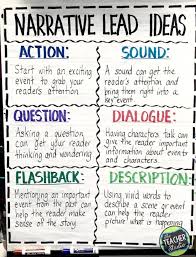 NARRATIVE LEAD IDEAS
ACTION:
Start with an exciting
event to grab your
readers attention.
SOUND:
A sound can get the
readers attention and
bring them right into a
key event.
QUESTION:
Asking a question
can get your reader
thinking and wondering
DIALOGUE:
Having characters talk can
give the reader important
information about events and
characters.
FLASHBACK:
Mentioning an important
event from the past can
help the reader make
sense of the story.
DESCRIPTION:
Using vivid words to
describe a scene or event
can help the reader
picture what is happening
THE
TEACHER
Studio